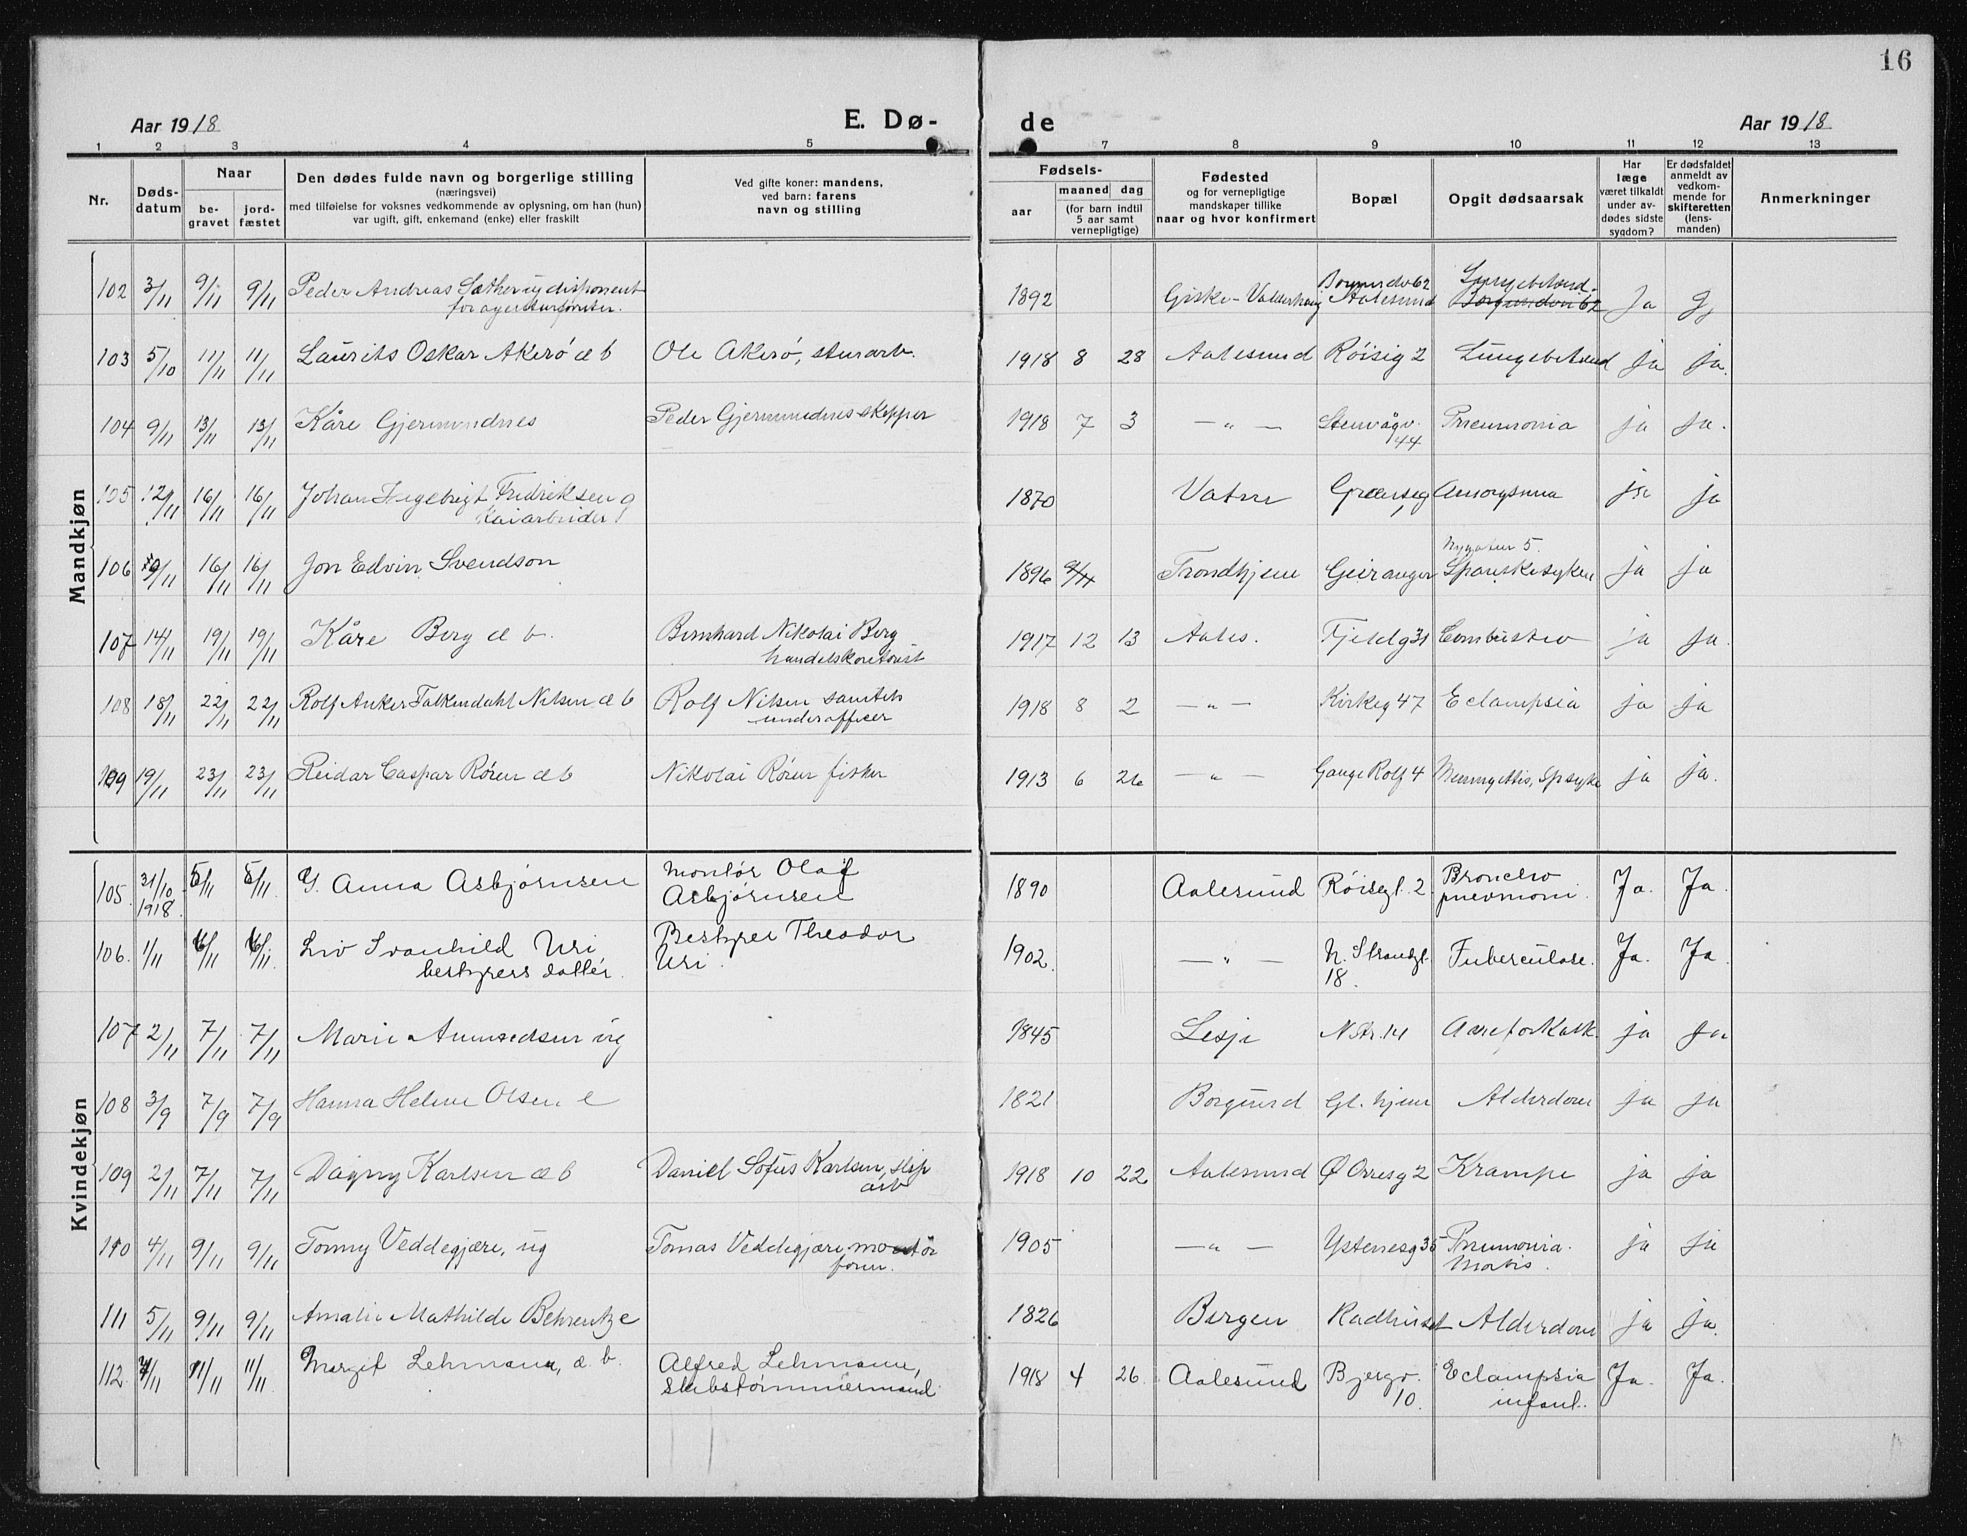 16
Aar 1918
E. Dø-
de
Aar 1918
1 2 3 4 5 7 8 9 10 11 12 13
Nr.
Døds-
datum
Naar
be-
gravet
jord-
fæstet
Den dødes fulde navn og borgerlige stilling
(næringsvei)
med tilføielse for voksnes vedkommende av oplysning, om han (hun)
var ugift, gift, enkemand (enke) eller fraskilt
Ved gifte koner: mandens,
ved barn: farens
navn og stilling
Fødsels-
aar
maaned dag
(for barn indtil
5 aar samt
vernepligtige)
Fødested
og for vernepligtige
mandskaper tillike
naar og hvor konfirmert
Bopæl
Opgit dødsaarsak
Har
læge
været tilkaldt
under av-
dødes sidste
sygdom?
Er dødsfaldet
anmeldt av
vedkom-
mende for
skifteretten
(lens-
manden)
Anmerkninger
Mandkjøn
102 3/11 9/11 9/11 Peder Andreas Sæther ug disponent 1892 Giske - Valderhaug Aalesund Ja
103 5/10 11/11 11/11 Laurits Oskar Akerö æ b Ole Akerö, 1918 8 28 Aalesund Röisig 2 Lungebetænd ja ja.
104 9/11 13/11 13/11 Kåre Gjermundnes Peder Gjermundnes skepper 1918 7 3 — „ — Stenvågv. 44 Pneumonia ja ja.
105 12/11 16/11 16/11 Johan Ingebrigt Fredriksen g
Kaiarbeider 1870 Vatne ja ja
106 16/11 16/11 Jon Edvin Svendson 1896 Trondhjem Geiranger Spanskesyken ja ja
107 14/11 19/11 19/11 Kåre Berg æ b. Bernhard Nikolai Berg 1917 12 13 Aales. Fjeldg 31 Combustio ja ja.
108 18/11 22/11 22/11 Rolf Anker Falkendahl Nilsen æ b Rolf Nilsen
underofficer 1918 8 2 — „ — Kirkeg 47 Eclampsia ja ja
109 19/11 23/11 23/11 Reidar Caspar Rören æ b Nikolai Rören fisker 1913 6 26 — „ — Gange Rolf 4 ja ja.
Kvindekjøn
105. 31/10 1918. 5/11 5/11. G. Anna Asbjørnsen Montør Olaf
Asbjørnsen 1890 Aalesund Röisegt. 2. Broncho
pneumoni. Ja. Ja.
106. 1/11 6/11 6/11. Liv Svanhild Uri
bestyrers datter. Bestyrer Theodor
Uri. 1902. — „ — N. Strandgt.
18. Tuberculose. Ja. Ja.
107 2/11 7/11 7/11 Marie Amundsen ug 1845 Lesje N Str. 14 Aareforkalk. ja ja
108 3/9 7/9 7/9 Hanna Helene Olsen e 1821 Borgund Gl. hjem Alderdom ja ja
109 2/11 7/11 7/11 Dagny Karlsen æ b Daniel Sofus Karlsen, slip
arb 1918 10 22 Aalesund Ø Orresg 2 Krampe ja ja
110 4/11 9/11 9/11 Tonny Veddegjære, ug Tomas Veddegjære, montör 1905 — „ — Ystenesg 35 Pneumonia. ja ja
111 5/11 9/11 9/11 Amalie Mathilde Behrentz e 1826 Bergen Raadhuset Alderdom ja ja.
112. 7/11 11/11 11/11 Margit Lehmann, æ. b. Alfred Lehmann,
skibstømmermand 1918 4 26. Aalesund Bjergv.
10. Eclampsia
infant.. Ja. Ja.